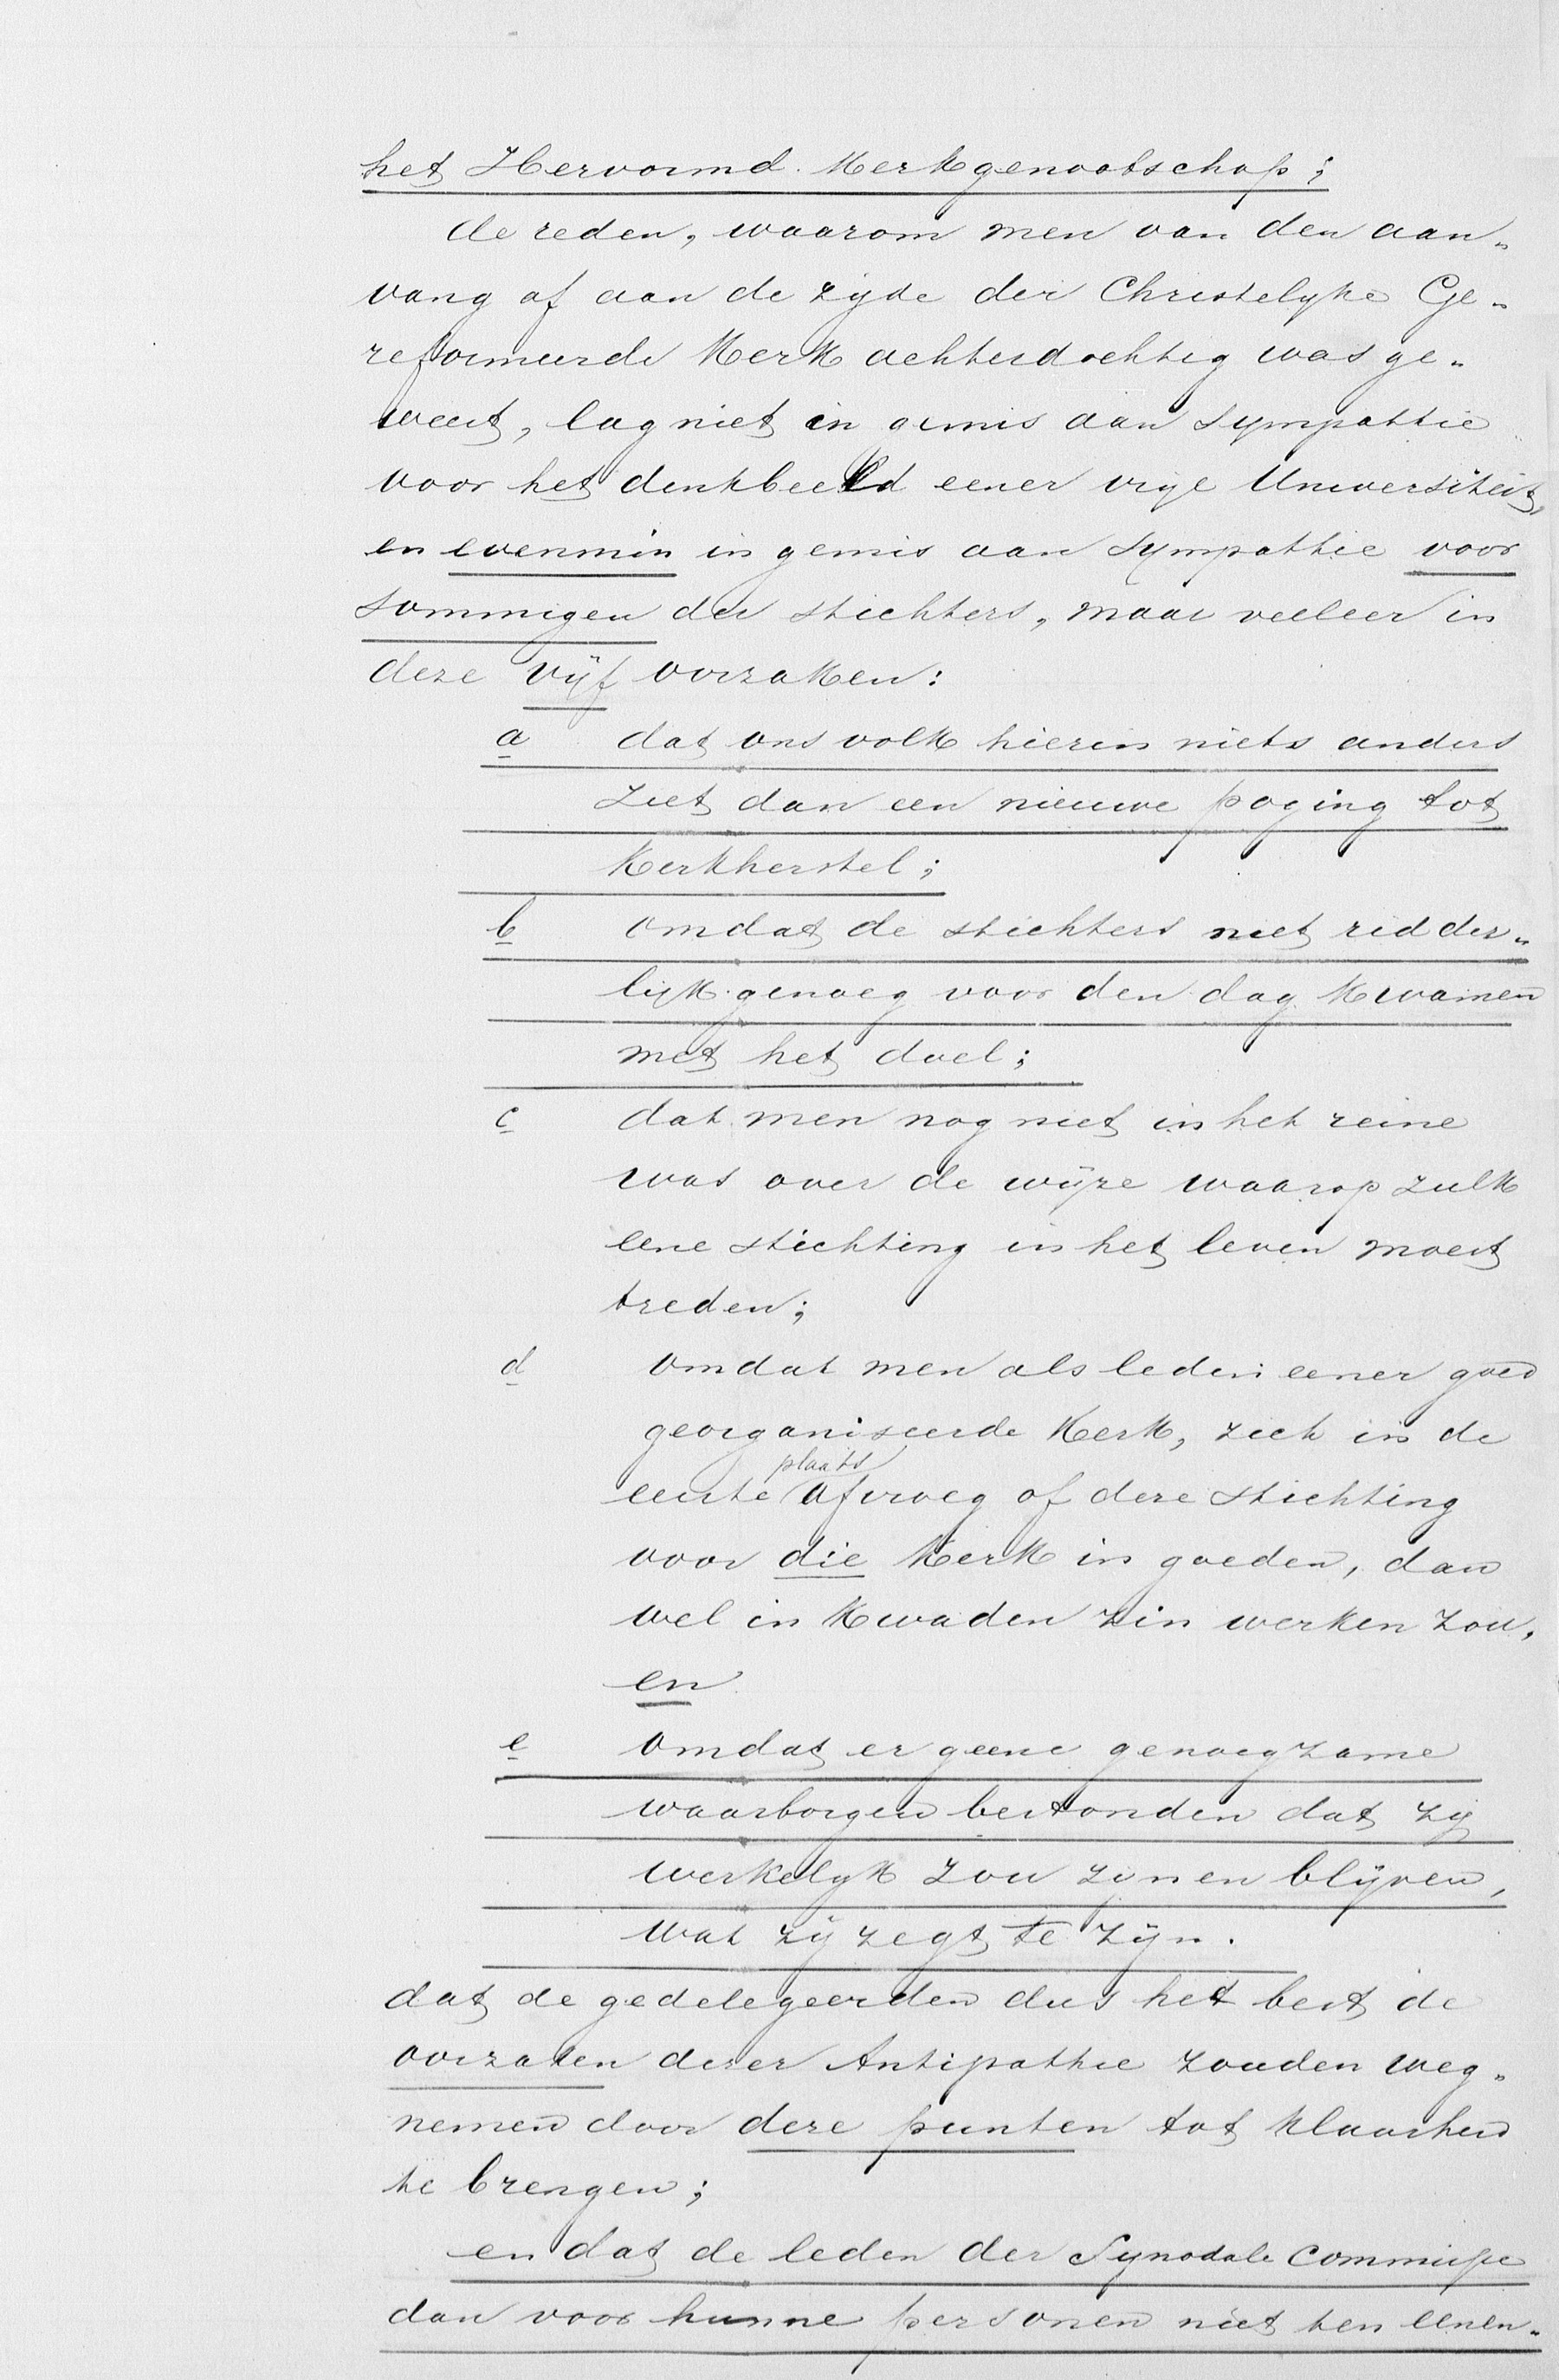 het Hervormd. Kerkgenootschap;
de reden, waarom men van den aan„
vang af aan de zijde der Christelyke Ge„
reformeerde Kerk achterdochtig was ge„
weest, lag niet in gemis aan sympathie
voor het denkbeeld eener vrije Universiteit,
en evenmin in gemis aan sympathie voor
sommigen der stichters, maar veeleer in
deze vijf oorzaken:
a dat ons volk hierin niets anders
ziet dan een nieuwe poging tot
Kerkherstel;
b omdat de stichters niet ridder„
lijk genoeg voor den dag kwamen
met het doel;
c dat men nog niet in het reine
was over de wijze waarop zulk
eene stichting in het leven moest
treden;
d omdat men als leden eener goed
georganiseerde Kerk, zich in de
plaats
eerste afvroeg of deze stichting
voor die Kerk in goeden, dan
wel in kwaden zin werken zou,
en
e omdat er geene genoegzame
waarborgen bestonden dat zij
werkelyk zou zijn en blijven,
wat zij zegt te zijn.
dat de gedelegeerden dus het best de
oorzaken dezer Antipathie zouden weg„
nemen door deze punten tot klaarheid
te brengen;
en dat de leden der Synodale Commissie
dan voor hunne personen niet ten eenen„